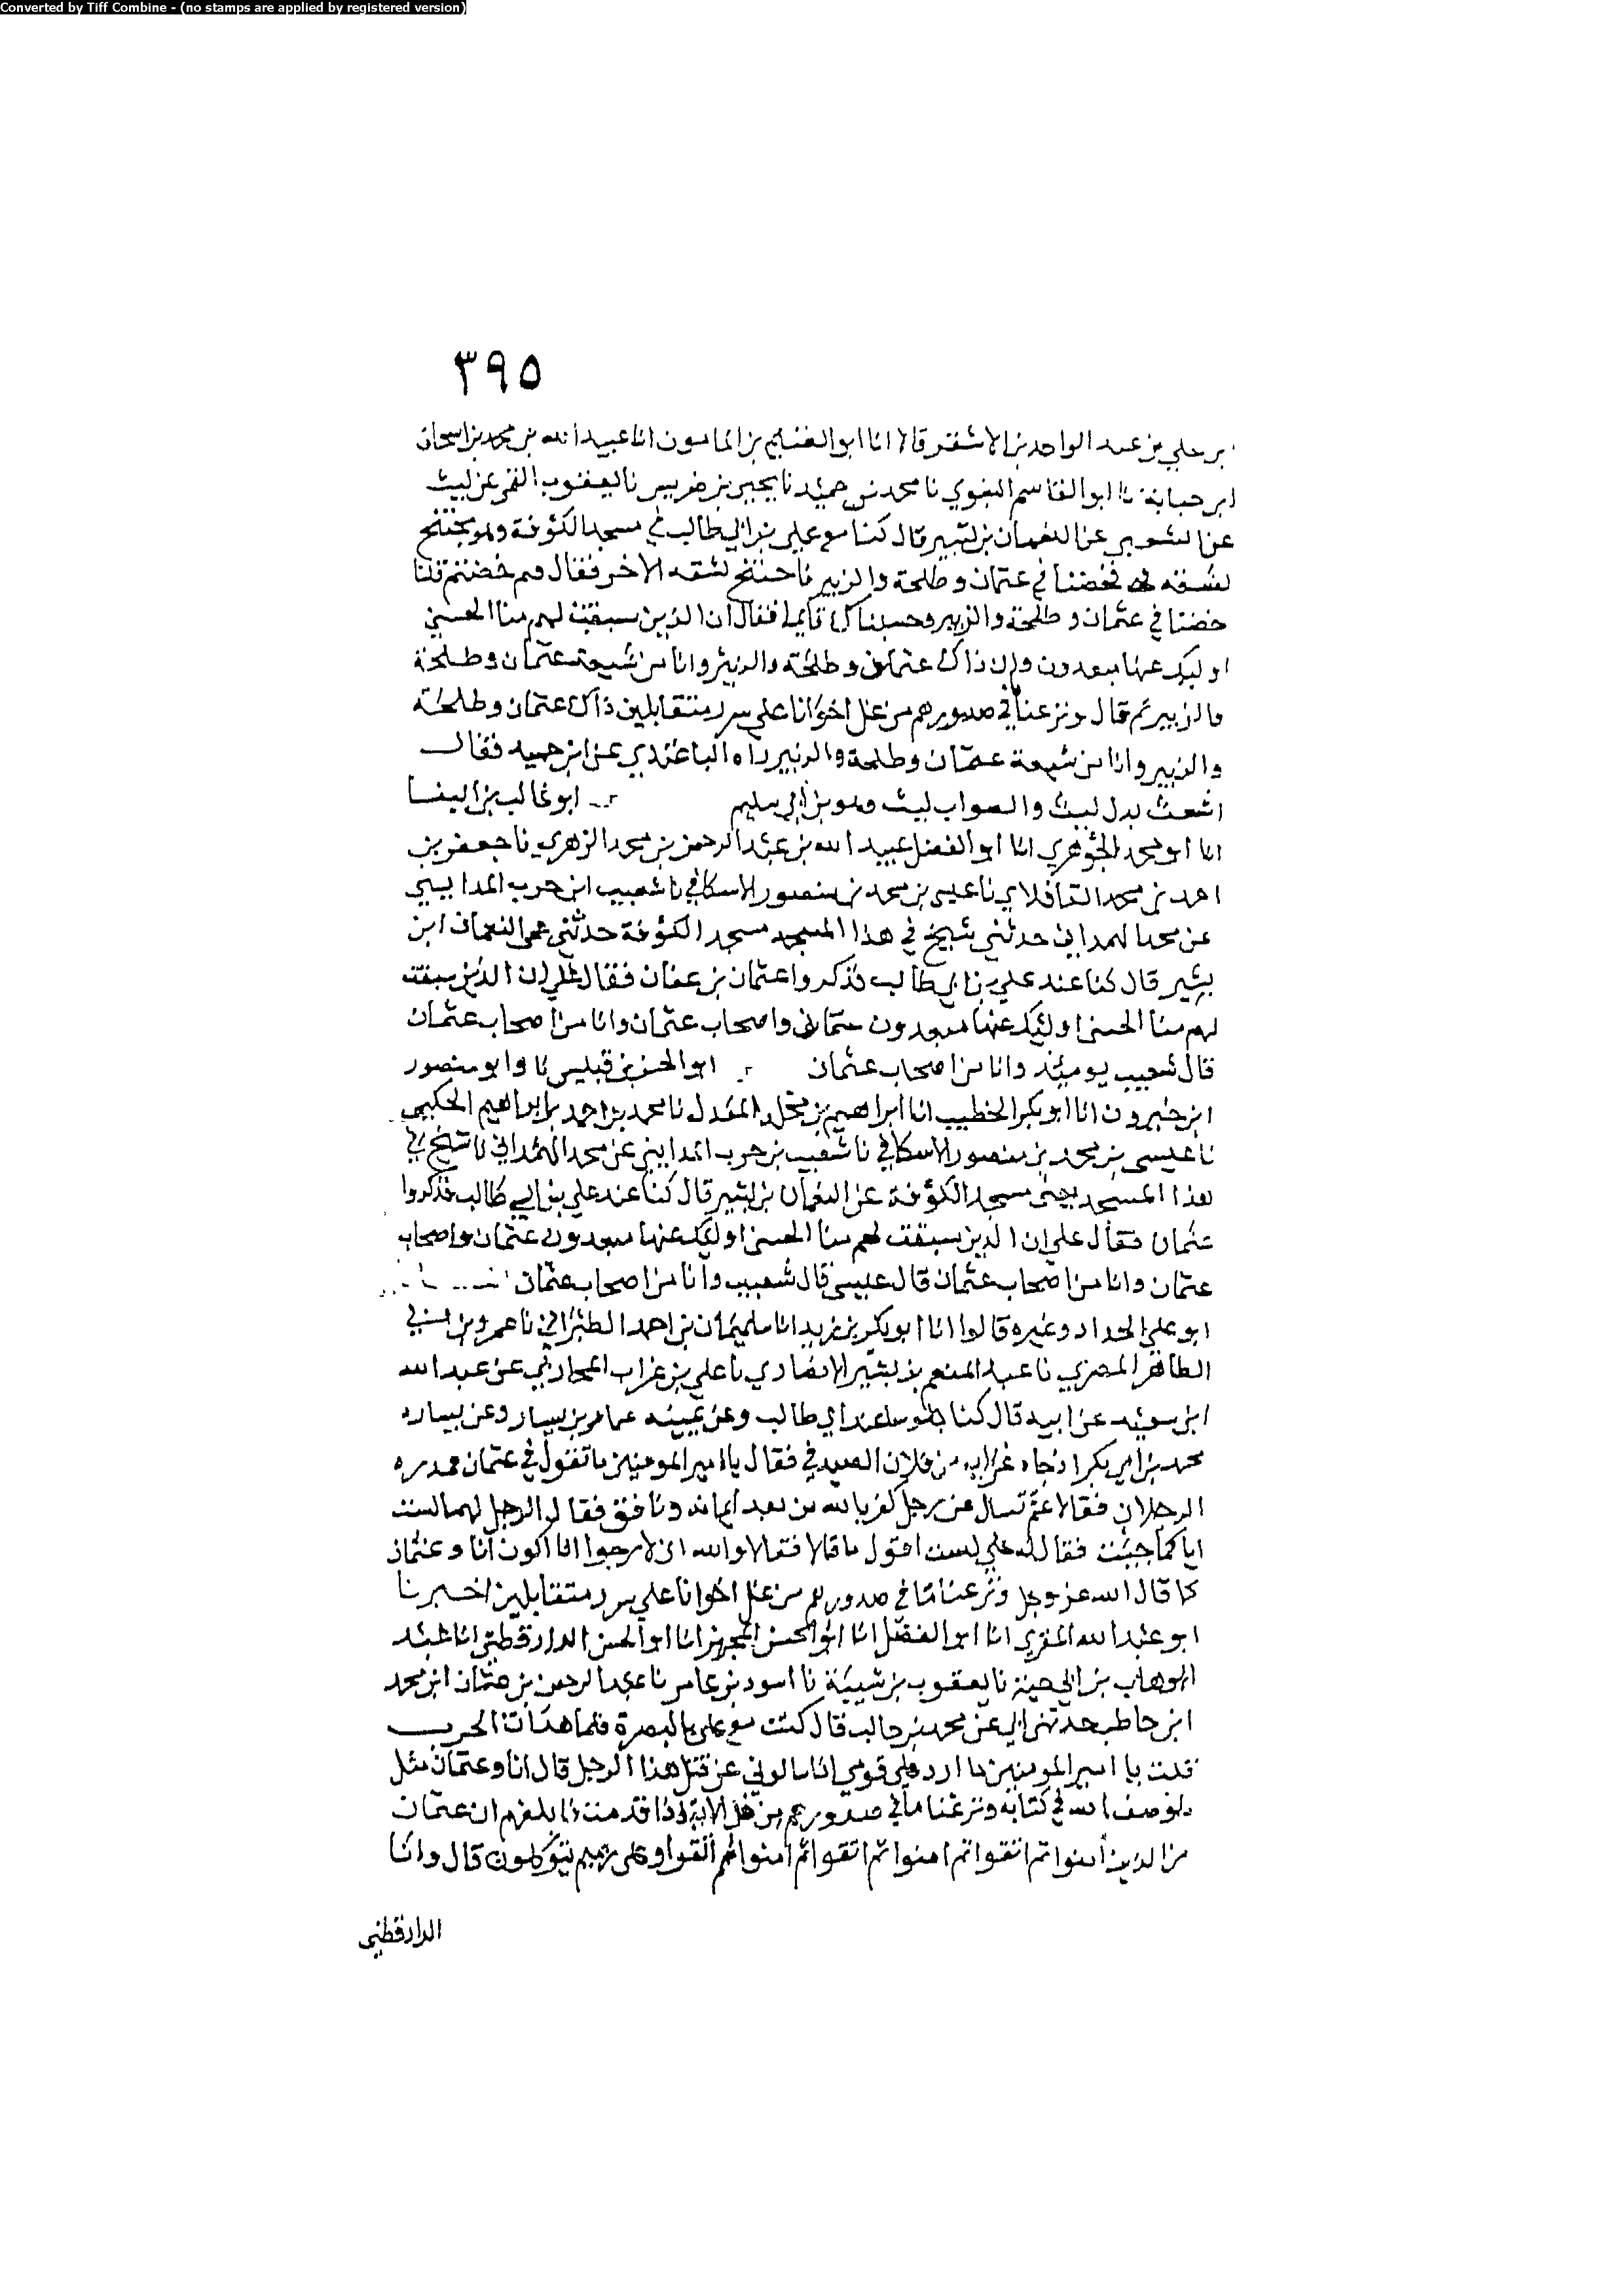 Converted by Tiff Combine - (no stamps are applied by registered version)
٣٩٥
بن علي بن عبد الواحد بن الاشقر قالا انا ابو الغنايم بن المامون انا عبيد الله بن محمد بن اسحاق
ابن حبابة نا ابو القاسم البغوي نا محمد بن حميد نا يحيى بن ضريس نا يعقوب القمي عن ليث
عن الشعبي عن النعمان بن بشير قال كنا مع علي بن ابي طالب في مسجد الكوفة وهو مجتنح
لشقه فخضنا في عثمان وطلحة والزبير فاجتنح لشقه الاخر فقال فيم خضتم قلنا
خضنا في عثمان وطلحة والزبير وحسبناك نايما فقال ان الذين سبقت لهم منا الحسنى
اوليك عنها مبعدون وان ذاك عثمان وطلحة والزبير وانا من شيعة عثمان وطلحة
والزبير ثم قال ونزعنا في صدورهم من غل اخوانا على سرر متقابلين ذاك عثمان وطلحة
والزبير وانا من شيعة عثمان وطلحة والزبير رواه الباغندي عن ابن حميد فقال
اشعث بدل ليث والصواب ليث وهو بن ابي سليم ابو غالب بن البنا
انا ابو محمد الجوهري انا ابو الفضل عبيد الله بن عبد الرحمن بن محمد الزهري نا جعفر بن
احمد بن محمد القافلاي نا عيسى بن محمد بن منصور الاسكافي نا شعيب ابن حرب المدايني
عن محمد الهمداني حدثني شيخ في هذا المسجد مسجد الكوفة حدثني عمي النعمان ابن
بشير قال كنا عند علي بن ابي طالب فذكروا عثمان بن عفان فقال علي ان الذين سبقت
لهم منا الحسنى اولئك عنها مبعدون عثمان واصحاب عثمان وانا من اصحاب عثمان
قال شعيب يوميئذ وانا من اصحاب عثمان ابو الحسن بن قبيس نا وابو منصور
ابن خيرون انا ابو بكر الخطيب انا ابراهيم بن مخلد المعدل نا محمد بن احمد بن ابراهيم الحكيمي
نا عيسى بن محمد بن منصور الاسكافي نا شعيب بن حرب المدايني عن محمد الهمداني نا شيخ في
هذا المسجد يعني مسجد الكوفة عن النعمان بن بشير قال كنا عند علي بن ابي طالب فذكروا
عثمان فقال علي ان الذين سبقت لهم منا الحسنى اوليك عنها مبعدون عثمان واصحاب
عثمان وانا من اصحاب عثمان قال عيسى قال شعيب وانا من اصحاب عثمان
ابو علي الحداد وغيره قالوا انا ابو بكر بن ريذة انا سليمان بن احمد الطبراني نا عمرو بن ابي
الطاهر المصري نا عبد المنعم بن بشير الانصاري نا علي بن غراب المحاربي عن عبد الله
ابن سعيد عن ابيه قال كنا جلوسا عند ابي طالب وعن يمينه عمار بن يسار وعن يساره
محمد بن ابي بكر اذ جاه غراب بن فلان الصيدفي فقال يا امير المومنين ما تقول في عثمان فبدره
الرجلان فقالا عم تسال عن رجل كفر بالله من بعد ايمانه ونافق فقال الرجل لهما لست
اياكما جيت فقال له علي لست اقول ما قالا فقالا والله اني لارجوا ان اكون انا وعثمان
كما قال الله عز وجل ونزعنا ما في صدورهم من غل اخوانا على سرر متقابلين اخبرنا
ابو عبد الله المقري انا ابو الفضل انا ابو الحسن المجهز انا ابو الحسن الدارقطني انا عبد
الوهاب بن ابي حية نا يعقوب بن شيبة نا اسود بن عامر نا عبد الرحمن بن عثمان ابن محمد
ابن حاطب حدثني ابي عن محمد بن حاطب قال كنت مع علي بالبصرة فلما هدات الحرب
قلت يا امير المومنين ما ارد على قومي اذا سالوني عن قتل هذا الرجل قال انا وعثمان مثل
ما وصف الله في كتابه ونزعنا ما في صدورهم من غل الاية اذا قدمت فابلغهم ان عثمان
من الذين امنوا ثم اتقوا ثم امنوا ثم اتقوا ثم امنوا ثم اتقوا وعلى ربهم يتوكلون قال وانا
الدارقطني